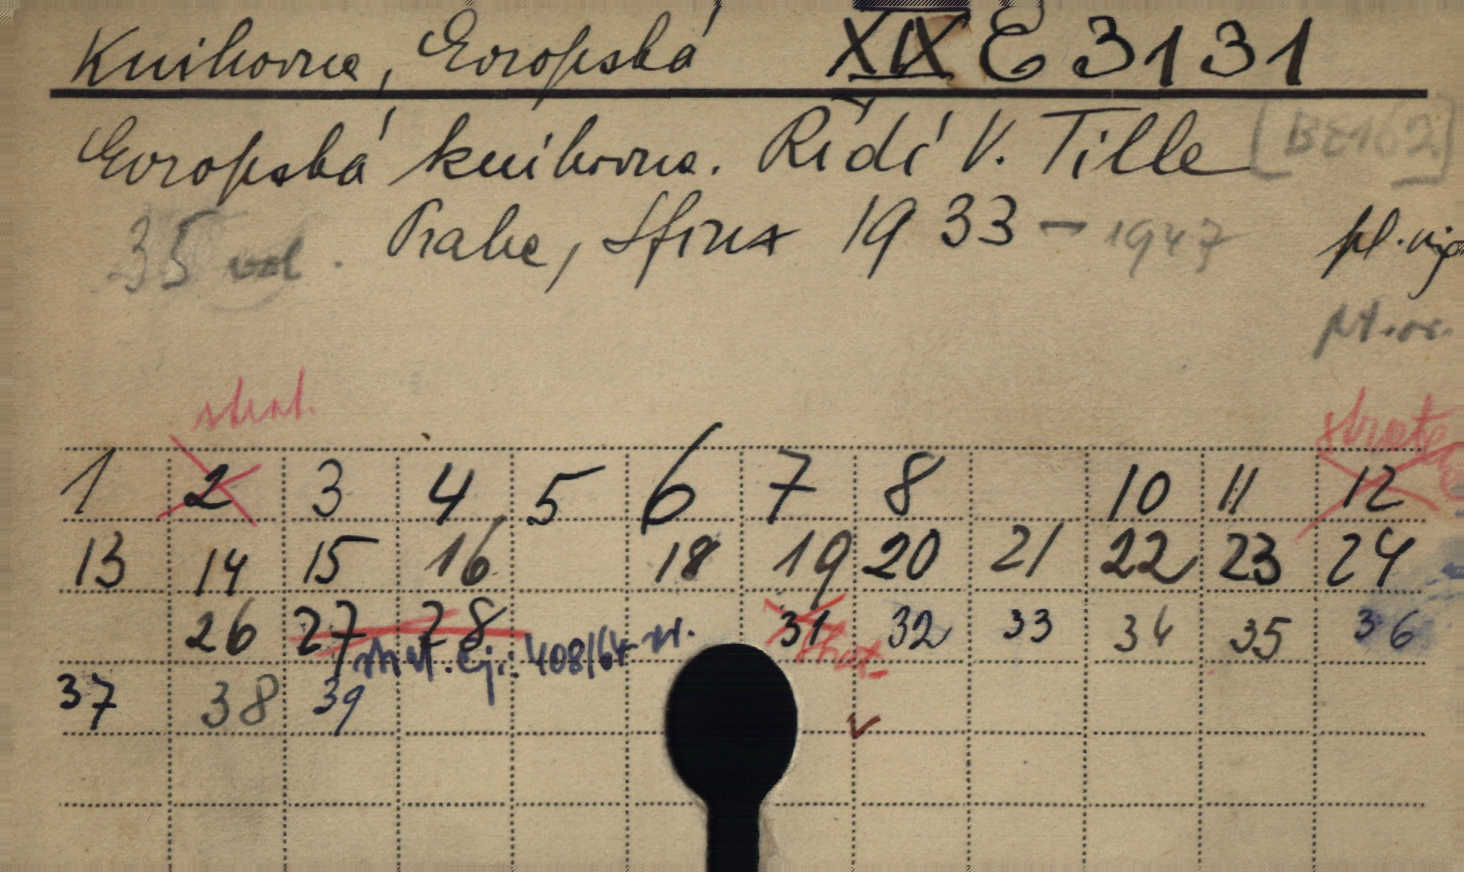 Knihovna, Evropská XIX E 3131
Evropská knihovna. Řídí V. Tille [BE162]
35 vol. Praha, Sfinx 1933 - 1947
1 2 3 4 5 6 7 8 10 11 12
13 14 15 16 18 19 20 21 22 23 24
26 27 28 31 32 33 34 35 36
408/64
37 38 39